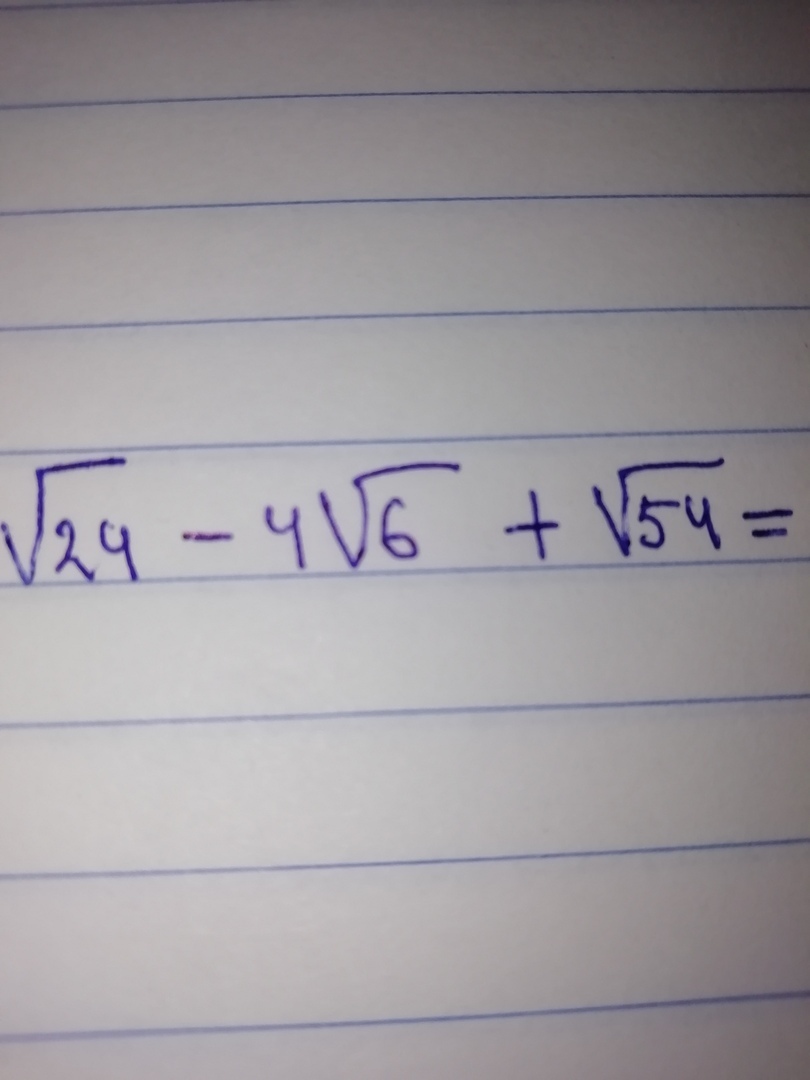 √24 - 4√6 + √54 =